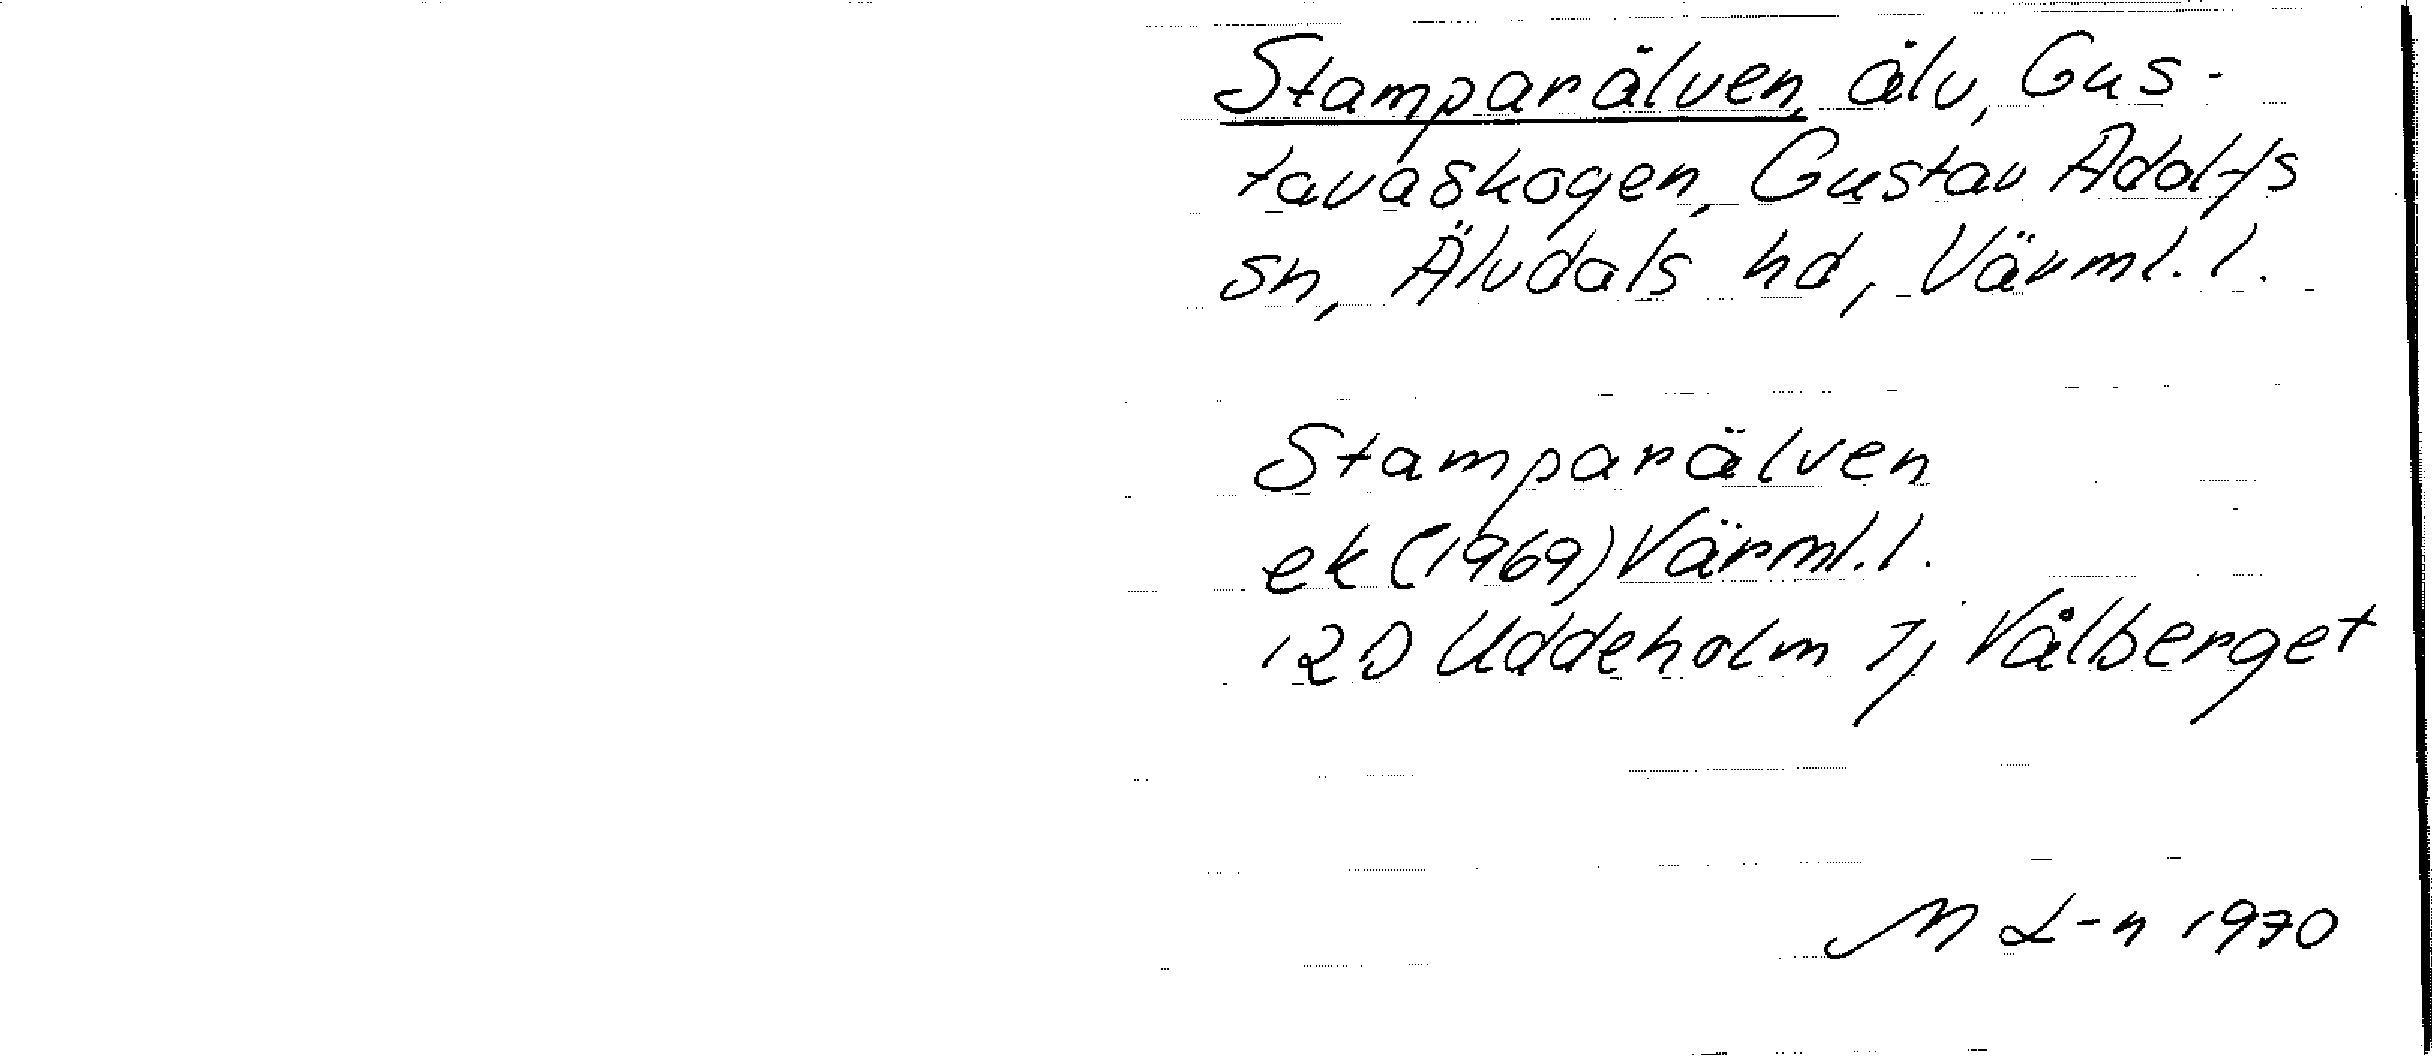 Stamparälven, älv, Gus-
tavaskogen, Gustav Adolfs
sn, Älvdals hd, Värml. l.
Stamparälven
ek (1969) Värml. l.
12D Uddeholm 7j Vålberget
M L-n 1970